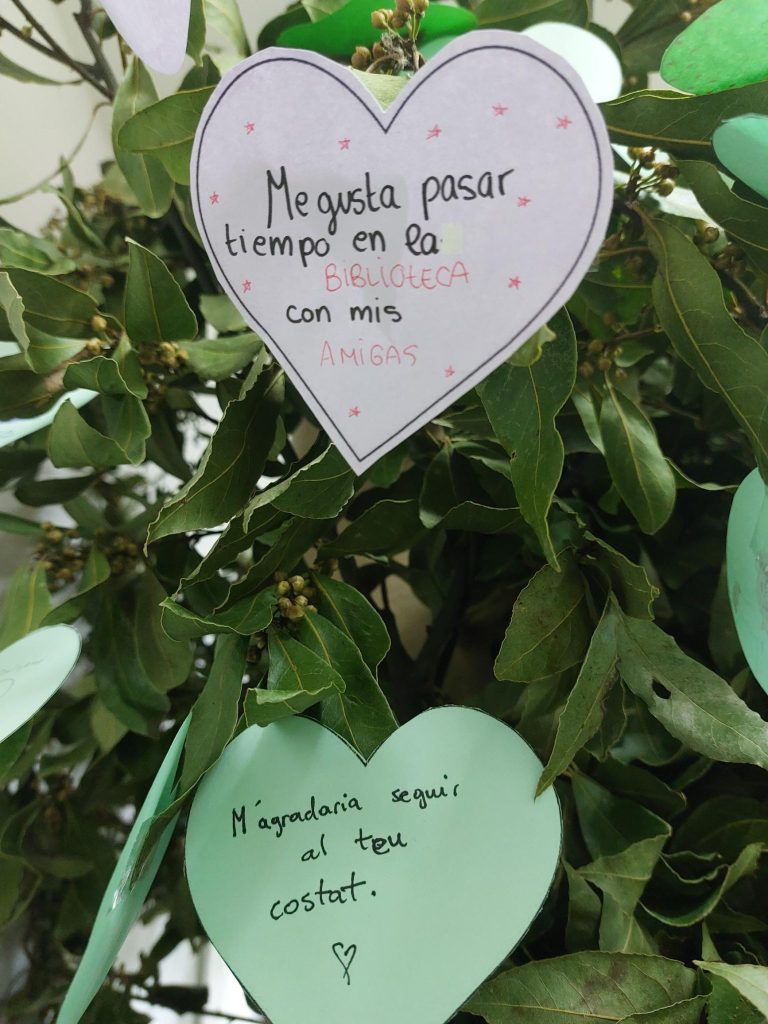 Me gusta pasar
tiempo en la
BIBLIOTECA
con mis
AMIGAS
M'agradaria seguir
al teu
costat.